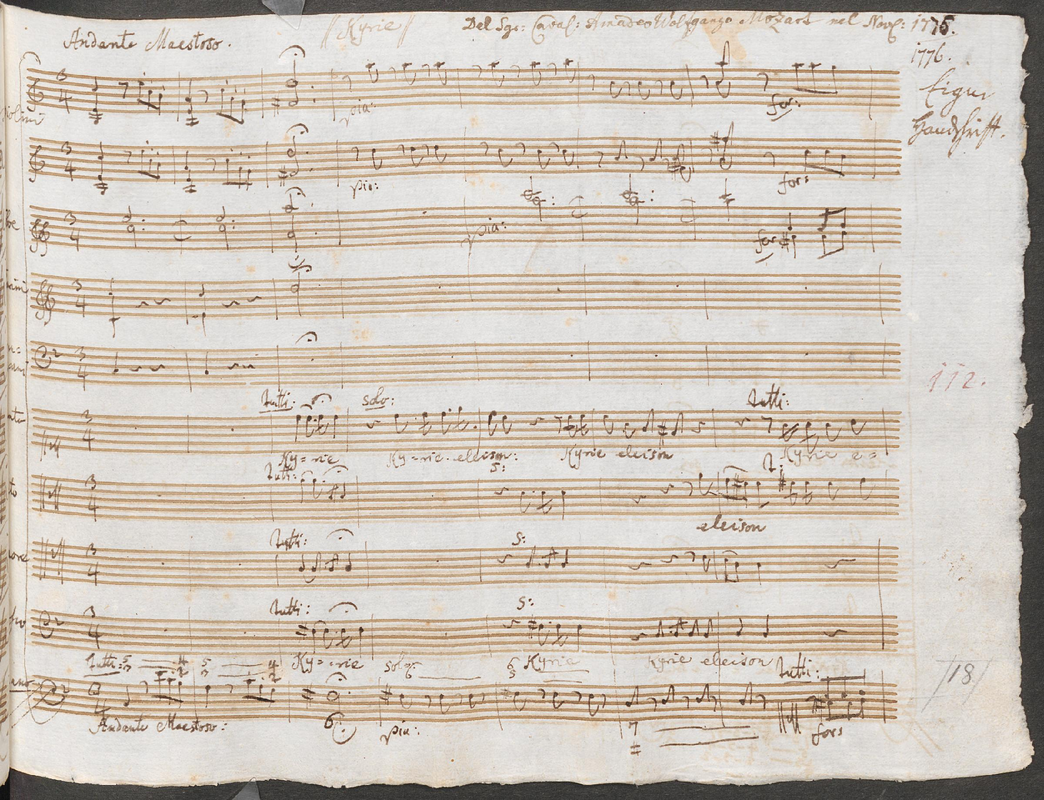 Andante Maestoso.
// Kyrie //
Del Sgr: Caval: Amadeo Wolfgango Mozart nel Nov: 1775.
1776.
Eigne
Handschrift.
3
4
pia:
for:
3
4
pia:
for:
3
4
pia:
for:
3
4
3
4
112.
tutti:
solo:
tutti:
3
4
Ky=rie
Ky=rie eleison:
Kyrie eleison
Kyrie e=
tutti:
S:
T:
3
4
eleison
tutti:
S:
3
4
tutti:
S:
3
4
tutti:
Ky=rie
solo:
6
5
Kyrie
Kyrie eleison
tutti:
/18/
3
4
Andante Maestoso:
6
pia:
7
for: